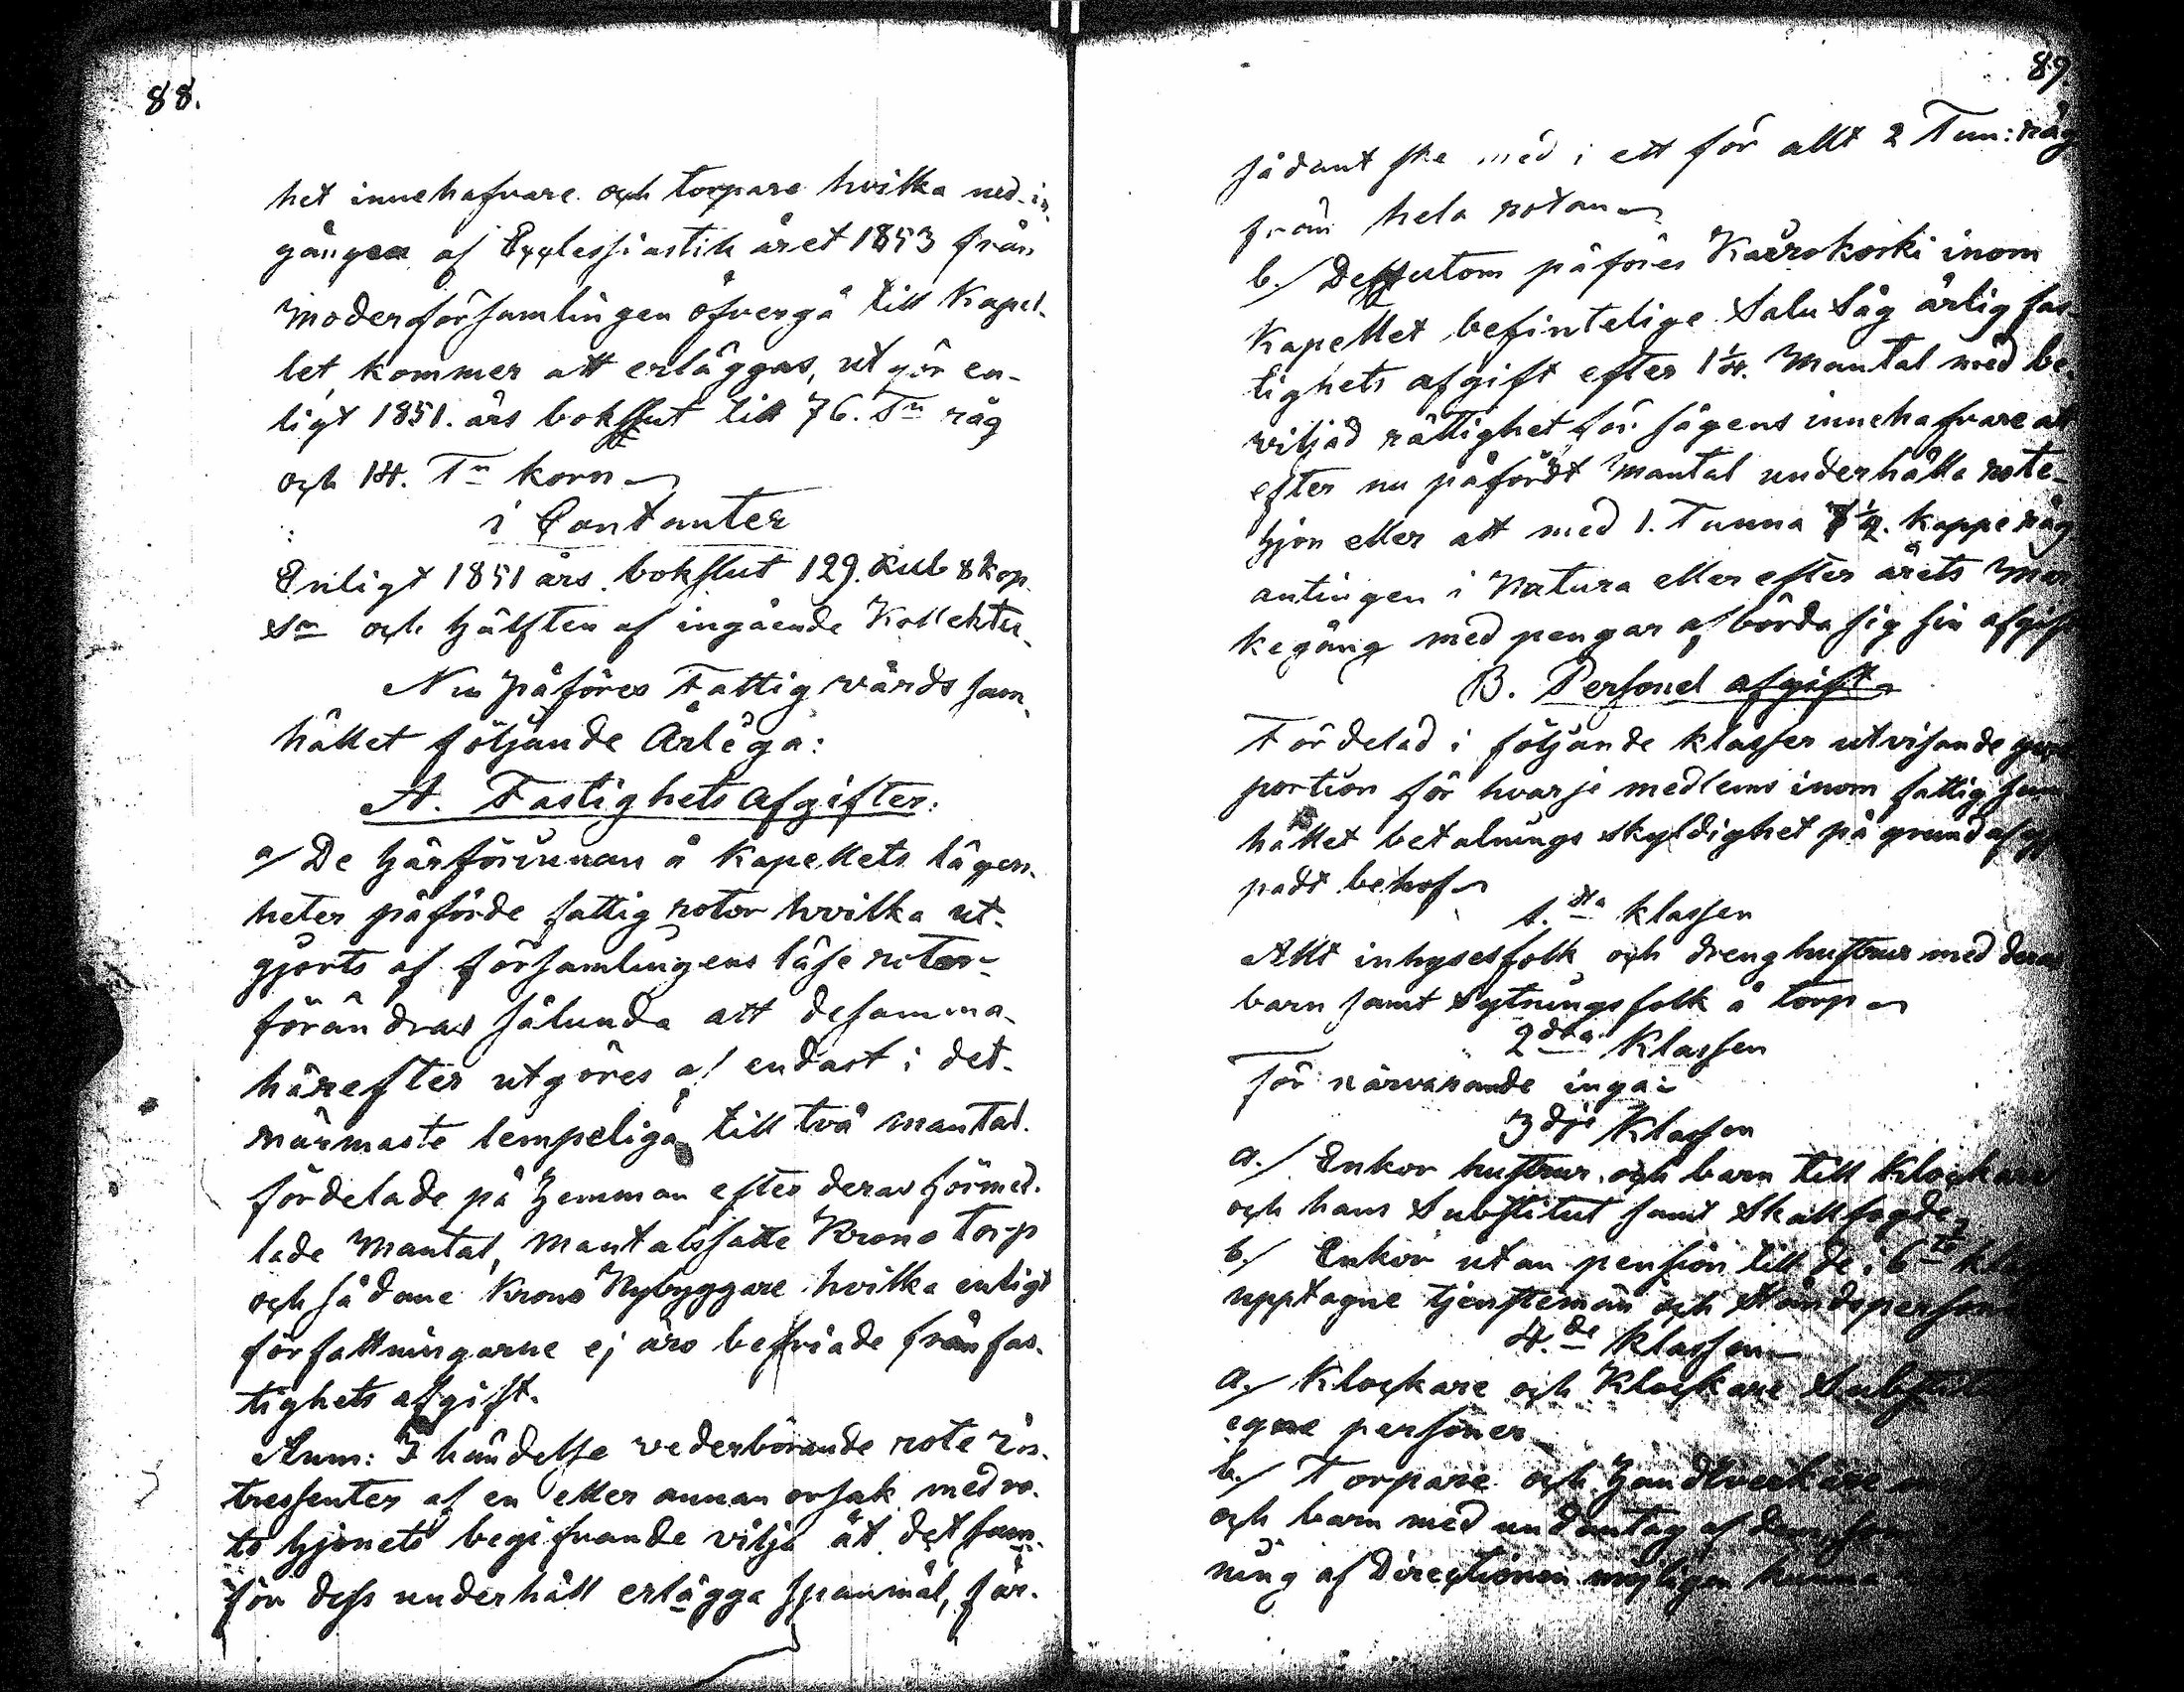 88.
het innehafvare och torpare hvilka med in-
gången af Ecclessiastik året 1853 från
moderförsamlingen öfvergå till Kapel-
let, kommer att erläggas, utgör en-
ligt 1851. års bokslut till 76. Tn råg
och 14. Tn korn
i Contanter
Enligt 1851 års bokslut 129. Rub 8 kop.
Sr och hälften af ingående Kollekter.
Nu påföres Fattigvårds sam-
hället följande Årliga:
A. Fastighets Afgifter:
a/ De härförinnan å Kapellets lägen-
heter påförde fattig rotor hvilka ut-
gjorts af församlingens läse rotor
förändras sålunda att desamma
härefter utgöres af endast i det-
närmaste lempeliga till två mantal
fördelade på hemman efter deras förmed-
lade Mantal, Mantalssatte Krono torp
och sådane Krono Nybyggare hvilka enligt
författningarne ej äro befriade från fas-
tighets afgift.
Anm: I händelse vederbörande rote in-
tressenter af en eller annan orsak med ro-
te hjonets begifvande vilja åt det sam-
för dess underhåll erlägga spanmål, får
89.
sådant ske med i ett för allt 2 Tun: råg
från hela rotan
b./ Dessutom påföres Kairokoski inom
Kapellet befintelige Salu Såg årlig fas-
tighets afgift efter 1 1/4. Mantal med be-
viljad rättighet för sågens innehafvare att
efter nu påfördt Mantal underhålla rote-
hjon eller att med 1. Tunna 7 1/2. kappe råg
antingen i Natura eller efter årets Mar-
kegång med pengar afbörda sig sin afgift
B. Personel afgift
Fördelad i följande klasser utvisande pro-
portion för hvarje medlems inom fattig sam-
hället betalnings skyldighet på grund af
padt behof
1.sta klassen
Allt inhysesfolk och dreng hustrur med deras
barn samt Sytningsfolk å torp
2dra Klassen
För närvarande inga
3dje Klassen
a./ Enkor hustrur och barn till Klockare
och hans Substitut samt Skallfogde
b./ Enkor utan pension till de i 6te
upptagne tjenstemän och Ståndsperson
4.de klassen
a./ Klockare och Klockare Substitut
egne personer
b./ Torpare och Handtverkare
och barn med undantag af dem, som
ning af Directionen möjligen kunna